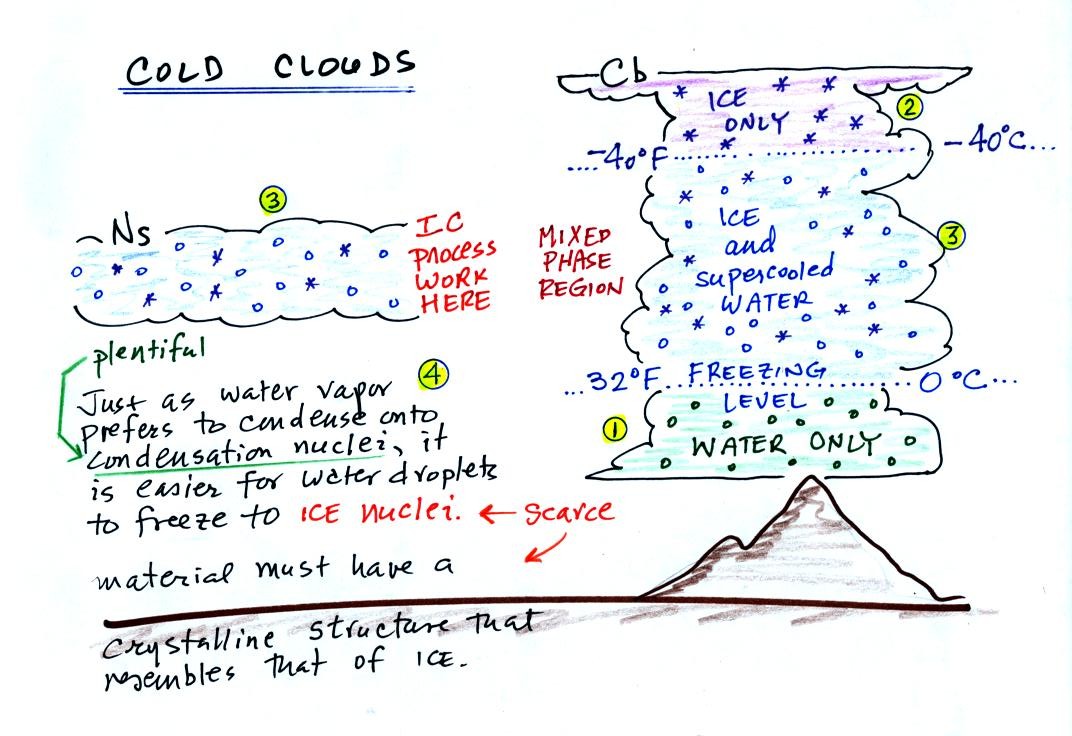 COLD CLOUDS
Cb
ICE
ONLY
2
-40°F
-40°C...
3
Ns
IC
PROCESS
WORK
HERE
MIXED
PHASE
REGION
ICE
and
supercooled
WATER
3
...32°F
FREEZING
LEVEL
0°C...
1
WATER ONLY
plentiful
4
Just as water vapor
prefers to condense onto
condensation nuclei, it
is easier for water droplets
to freeze to ICE nuclei. ← scarce
material must have a
crystalline structure that
resembles that of ICE.